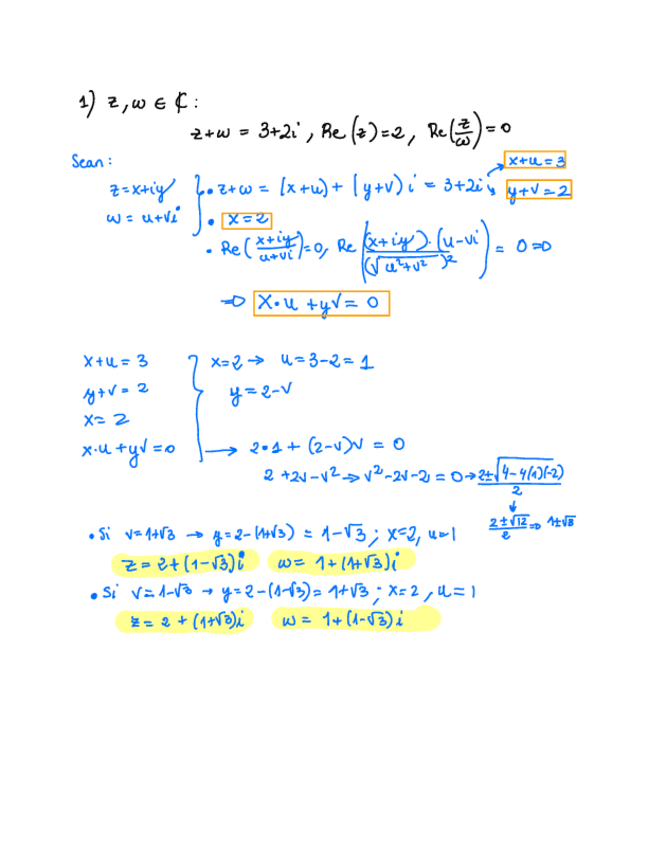 1) z, w ∈ ℂ :
z+w = 3+2i , Re(z)=2, Re(z/w)=0
Sean:
x+u=3
z=x+iy } • z+w = (x+u) + (y+v) i = 3+2i
y+v=2
w= u+vi • x=2
• Re((x+iy)/(u+vi))=0, Re((x+iy)·(u-vi)/(√u²+v²)²) = 0 ⇒
⇒ x·u + yv = 0
x+u = 3 x=2 → u=3-2=1
y+v = 2 y=2-v
x= 2
x·u + yv =0 → 2·1 + (2-v)v = 0
2 +2v-v² ⇒ v²-2v-2=0 → (2±√4-4(1)(-2))/2
↓
(2±√12)/2 ⇒ 1±√3
• Si v=1+√3 → y=2-(1+√3) = 1-√3 ; x=2, u=1
z=2+(1-√3)i w= 1+(1+√3)i
• Si v=1-√3 → y=2-(1-√3)= 1+√3 ; x=2 , u=1
z= 2 + (1+√3)i w= 1+(1-√3)i